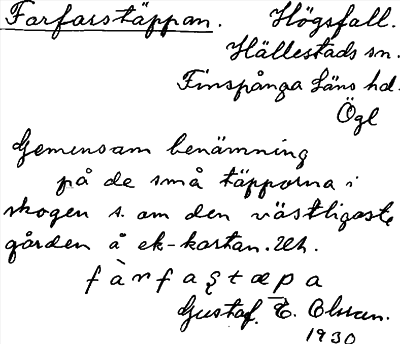 Farfarstäppan. Högsfall.
Hällestads sn.
Finspånga Läns hd.
Ögl
Gemensam benämning
på de små täpporna i
skogen s. om den västligaste
gården å ek-kartan. Uh.
fàrfaʂtæpa
Gustaf. E. Olsson.
1930